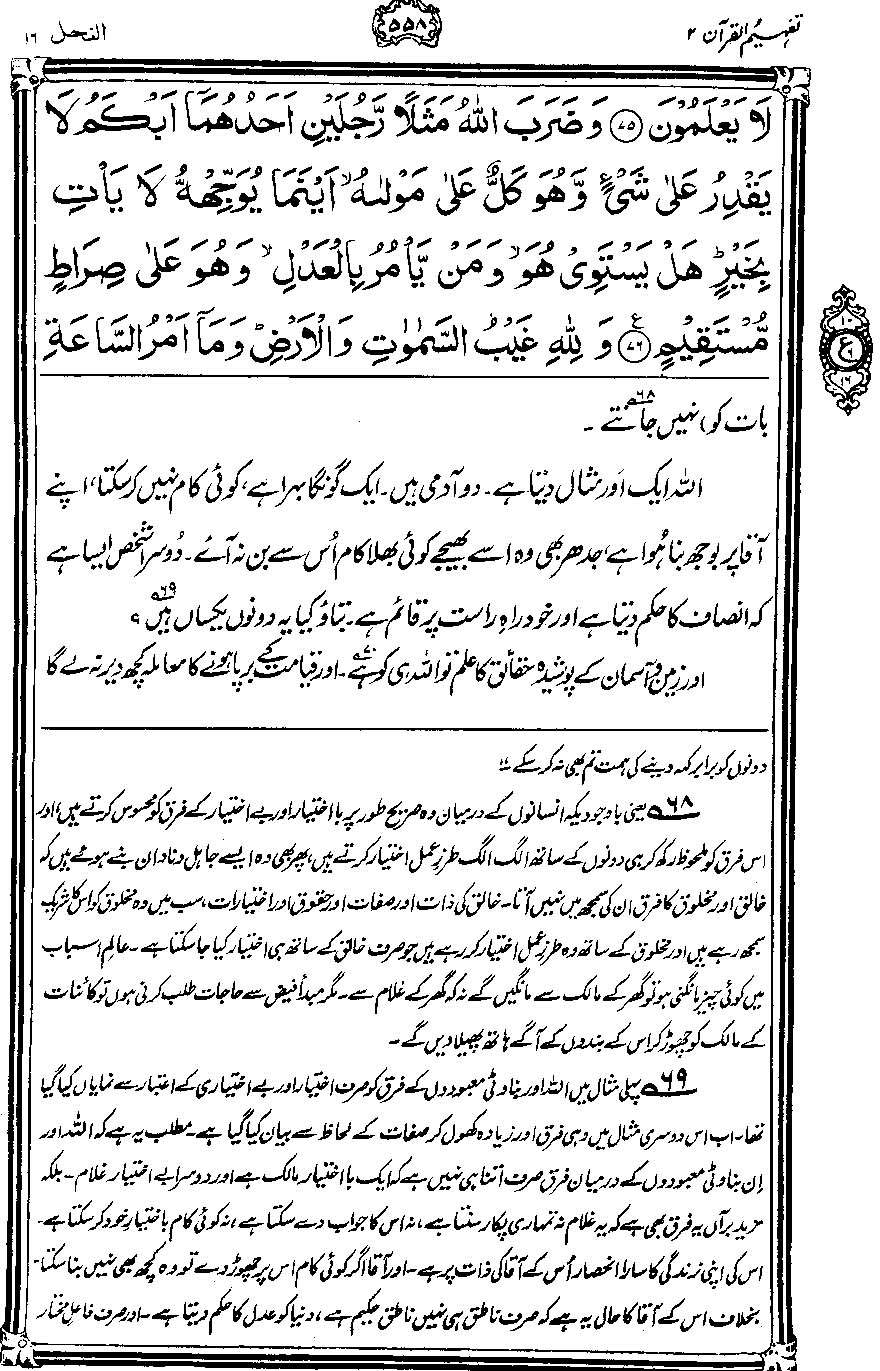 تفہیم القرآن ۲
۵۵۸
النحل ۱۶
لَا يَعْلَمُوْنَ ﴿۷۵﴾ وَضَرَبَ اللّٰهُ مَثَلًا رَّجُلَيْنِ اَحَدُهُمَاۤ اَبْكَمُ لَا
يَقْدِرُ عَلٰى شَیْءٍ وَّهُوَ كَلٌّ عَلٰى مَوْلٰىهُ ۙ اَيْنَمَا يُوَجِّهْهُّ لَا يَاْتِ
بِخَيْرٍ ؕ هَلْ يَسْتَوِیْ هُوَ ۙ وَمَنْ يَّاْمُرُ بِالْعَدْلِ ۙ وَهُوَ عَلٰى صِرَاطٍ
مُّسْتَقِيْمٍ ﴿۷۶﴾ ع وَلِلّٰهِ غَيْبُ السَّمٰوٰتِ وَالْاَرْضِ ؕ وَمَاۤ اَمْرُ السَّاعَةِ
۱۰
ع
۹
۱۶
بات کو) نہیں جانتے۶۸۔
اللہ ایک اور مثال دیتا ہے۔ دو آدمی ہیں۔ ایک گونگا بہرا ہے، کوئی کام نہیں کر سکتا، اپنے
آقا پر بوجھ بنا ہُوا ہے، جدھر بھی وہ اسے بھیجے کوئی بھلا کام اُس سے بن نہ آئے۔ دُوسرا شخص ایسا ہے
کہ انصاف کا حکم دیتا ہے اور خود راہِ راست پر قائم ہے۔ بتاؤ کیا یہ دونوں یکساں ہیں۶۹؟
اور زمین و آسمان کے پوشیدہ حقائق کا علم تو اللہ ہی کو ہے۷۰۔ اور قیامت کے برپا ہونے کا معاملہ کچھ دیر نہ لے گا
دونوں کو برابر کہہ دینے کی ہمت تم بھی نہ کر سکے۔"
۶۸ یعنی باوجودیکہ انسانوں کے درمیان وہ صریح طور پر با اختیار اور بے اختیار کے فرق کو محسوس کرتے ہیں، اور
اس فرق کو ملحوظ رکھ کر ہی دونوں کے ساتھ الگ الگ طرزِ عمل اختیار کرتے ہیں، پھر بھی وہ ایسے جاہل و نادان بنے ہوئے ہیں کہ
خالق اور مخلوق کا فرق ان کی سمجھ میں نہیں آتا۔ خالق کی ذات اور صفات اور حقوق اور اختیارات، سب میں وہ مخلوق کو اس کا شریک
سمجھ رہے ہیں اور مخلوق کے ساتھ وہ طرزِ عمل اختیار کر رہے ہیں جو صرف خالق کے ساتھ ہی اختیار کیا جا سکتا ہے۔ عالمِ اسباب
میں کوئی چیز مانگنی ہو تو گھر کے مالک سے مانگیں گے نہ کہ گھر کے غلام سے۔ مگر مبدأ فیض سے حاجات طلب کرنی ہوں تو کائنات
کے مالک کو چھوڑ کر اس کے بندوں کے آگے ہاتھ پھیلا دیں گے۔
۶۹ پہلی مثال میں اللہ اور بناوٹی معبودوں کے فرق کو صرف اختیار اور بے اختیاری کے اعتبار سے نمایاں کیا گیا
تھا۔ اب اس دوسری مثال میں وہی فرق اور زیادہ کھول کر صفات کے لحاظ سے بیان کیا گیا ہے۔ مطلب یہ ہے کہ اللہ اور
اِن بناوٹی معبودوں کے درمیان فرق صرف اتنا ہی نہیں ہے کہ ایک با اختیار مالک ہے اور دوسرا بے اختیار غلام۔ بلکہ
مزید برآں یہ فرق بھی ہے کہ یہ غلام نہ تمہاری پکار سنتا ہے، نہ اس کا جواب دے سکتا ہے، نہ کوئی کام باختیار خود کر سکتا ہے۔
اس کی اپنی زندگی کا سارا انحصار اُس کے آقا کی ذات پر ہے۔ اور آقا اگر کوئی کام اس پر چھوڑ دے تو وہ کچھ بھی نہیں بنا سکتا۔
بخلاف اس کے آقا کا حال یہ ہے کہ صرف ناطق ہی نہیں ناطق حکیم ہے، دنیا کو عدل کا حکم دیتا ہے۔ اور صرف فاعل مختار